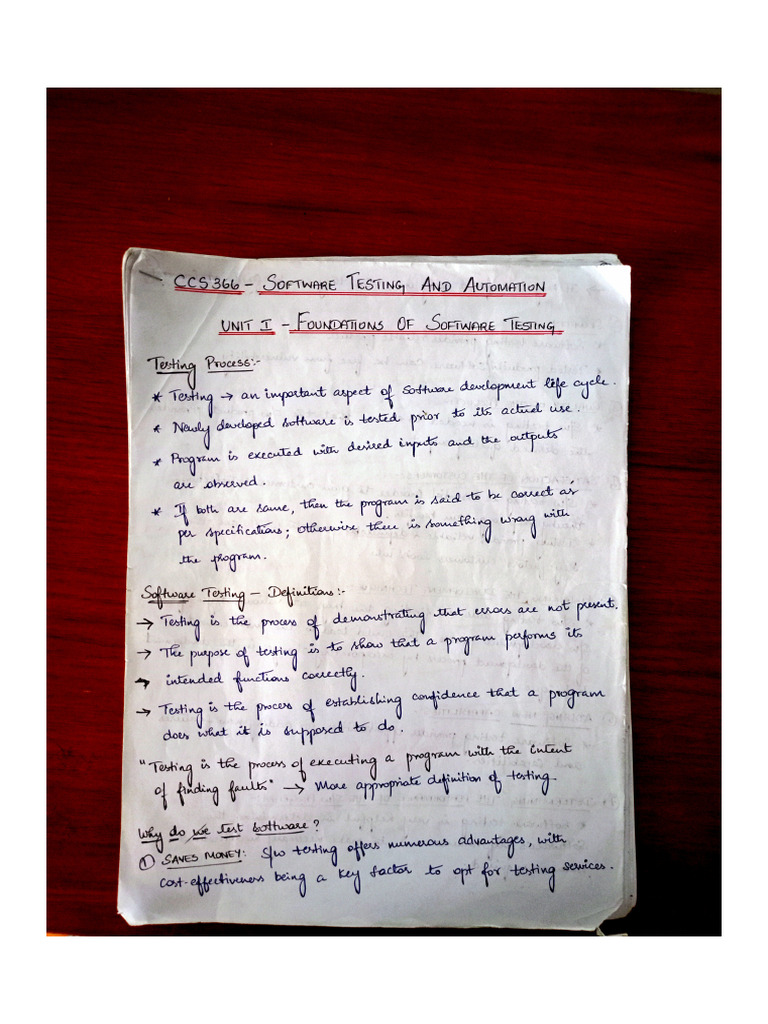 CCS366 - SOFTWARE TESTING AND AUTOMATION
UNIT I - FOUNDATIONS OF SOFTWARE TESTING
Testing Process:-
* Testing → an important aspect of software development life cycle.
* Newly developed software is tested prior to its actual use.
* Program is executed with desired inputs and the outputs
are observed.
* If both are same, then the program is said to be correct as
per specifications; otherwise there is something wrong with
the program.
Software Testing - Definitions:-
→ Testing is the process of demonstrating that errors are not present.
→ The purpose of testing is to show that a program performs its
→ intended functions correctly.
→ Testing is the process of establishing confidence that a program
does what it is supposed to do.
"Testing is the process of executing a program with the intent
of finding faults" → More appropriate definition of testing.
Why do we test software?
① SAVES MONEY: S/w testing offers numerous advantages, with
cost-effectiveness being a key factor to opt for testing services.